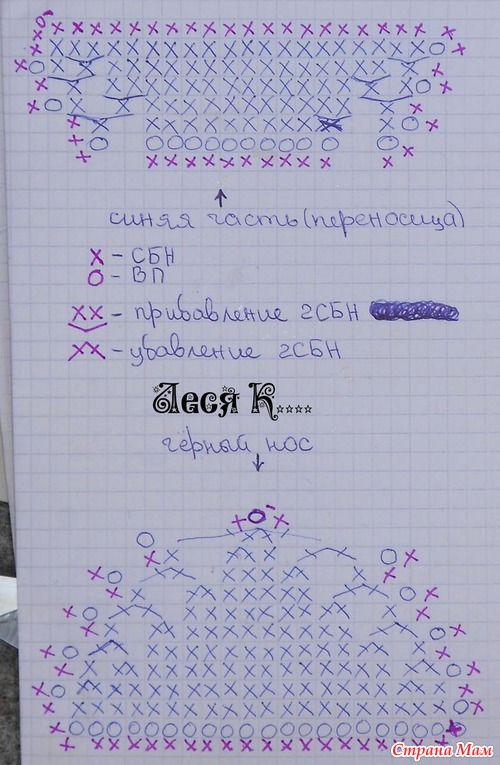 синяя часть (переносица)
х - СБН
о - ВП
хх - прибавление 2СБН
хх - убавление 2СБН
Леся К....
чёрный нос
Страна Мам